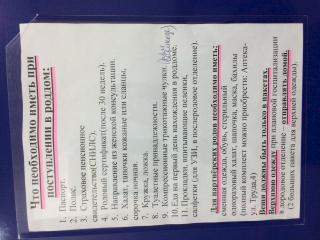 Что необходимо иметь при
поступлении в роддом:
1. Паспорт.
2. Полис.
3. Страховое пенсионное
свидетельство(СНИЛС).
4. Родовый сертификат(после 30 недель).
5. Направление из женской консультации.
6. Халат, тапочки кожаные или сланцы,
сорочка ночная.
7. Кружка, ложка.
8. Туалетные принадлежности.
9. Компрессионные трикотажные чулки.
10.Еда на первый день нахождения в роддоме.
11.Прокладки, впитывающие пеленки,
салфетки (для УЗИ, в послеродовое отделение).
Для партнёрских родов необходимо иметь:
сменная одежда, обувь, стерильный
одноразовый халат, шапочка, маска, бахилы
(полный комплект можно приобрести: Аптека-
ул. Труда,4)
Вещи должны быть только в пакетах.
Верхнюю одежду при плановой госпитализации
в родовое отделение – отправлять домой
(2 больших пакета для верхней одежды).